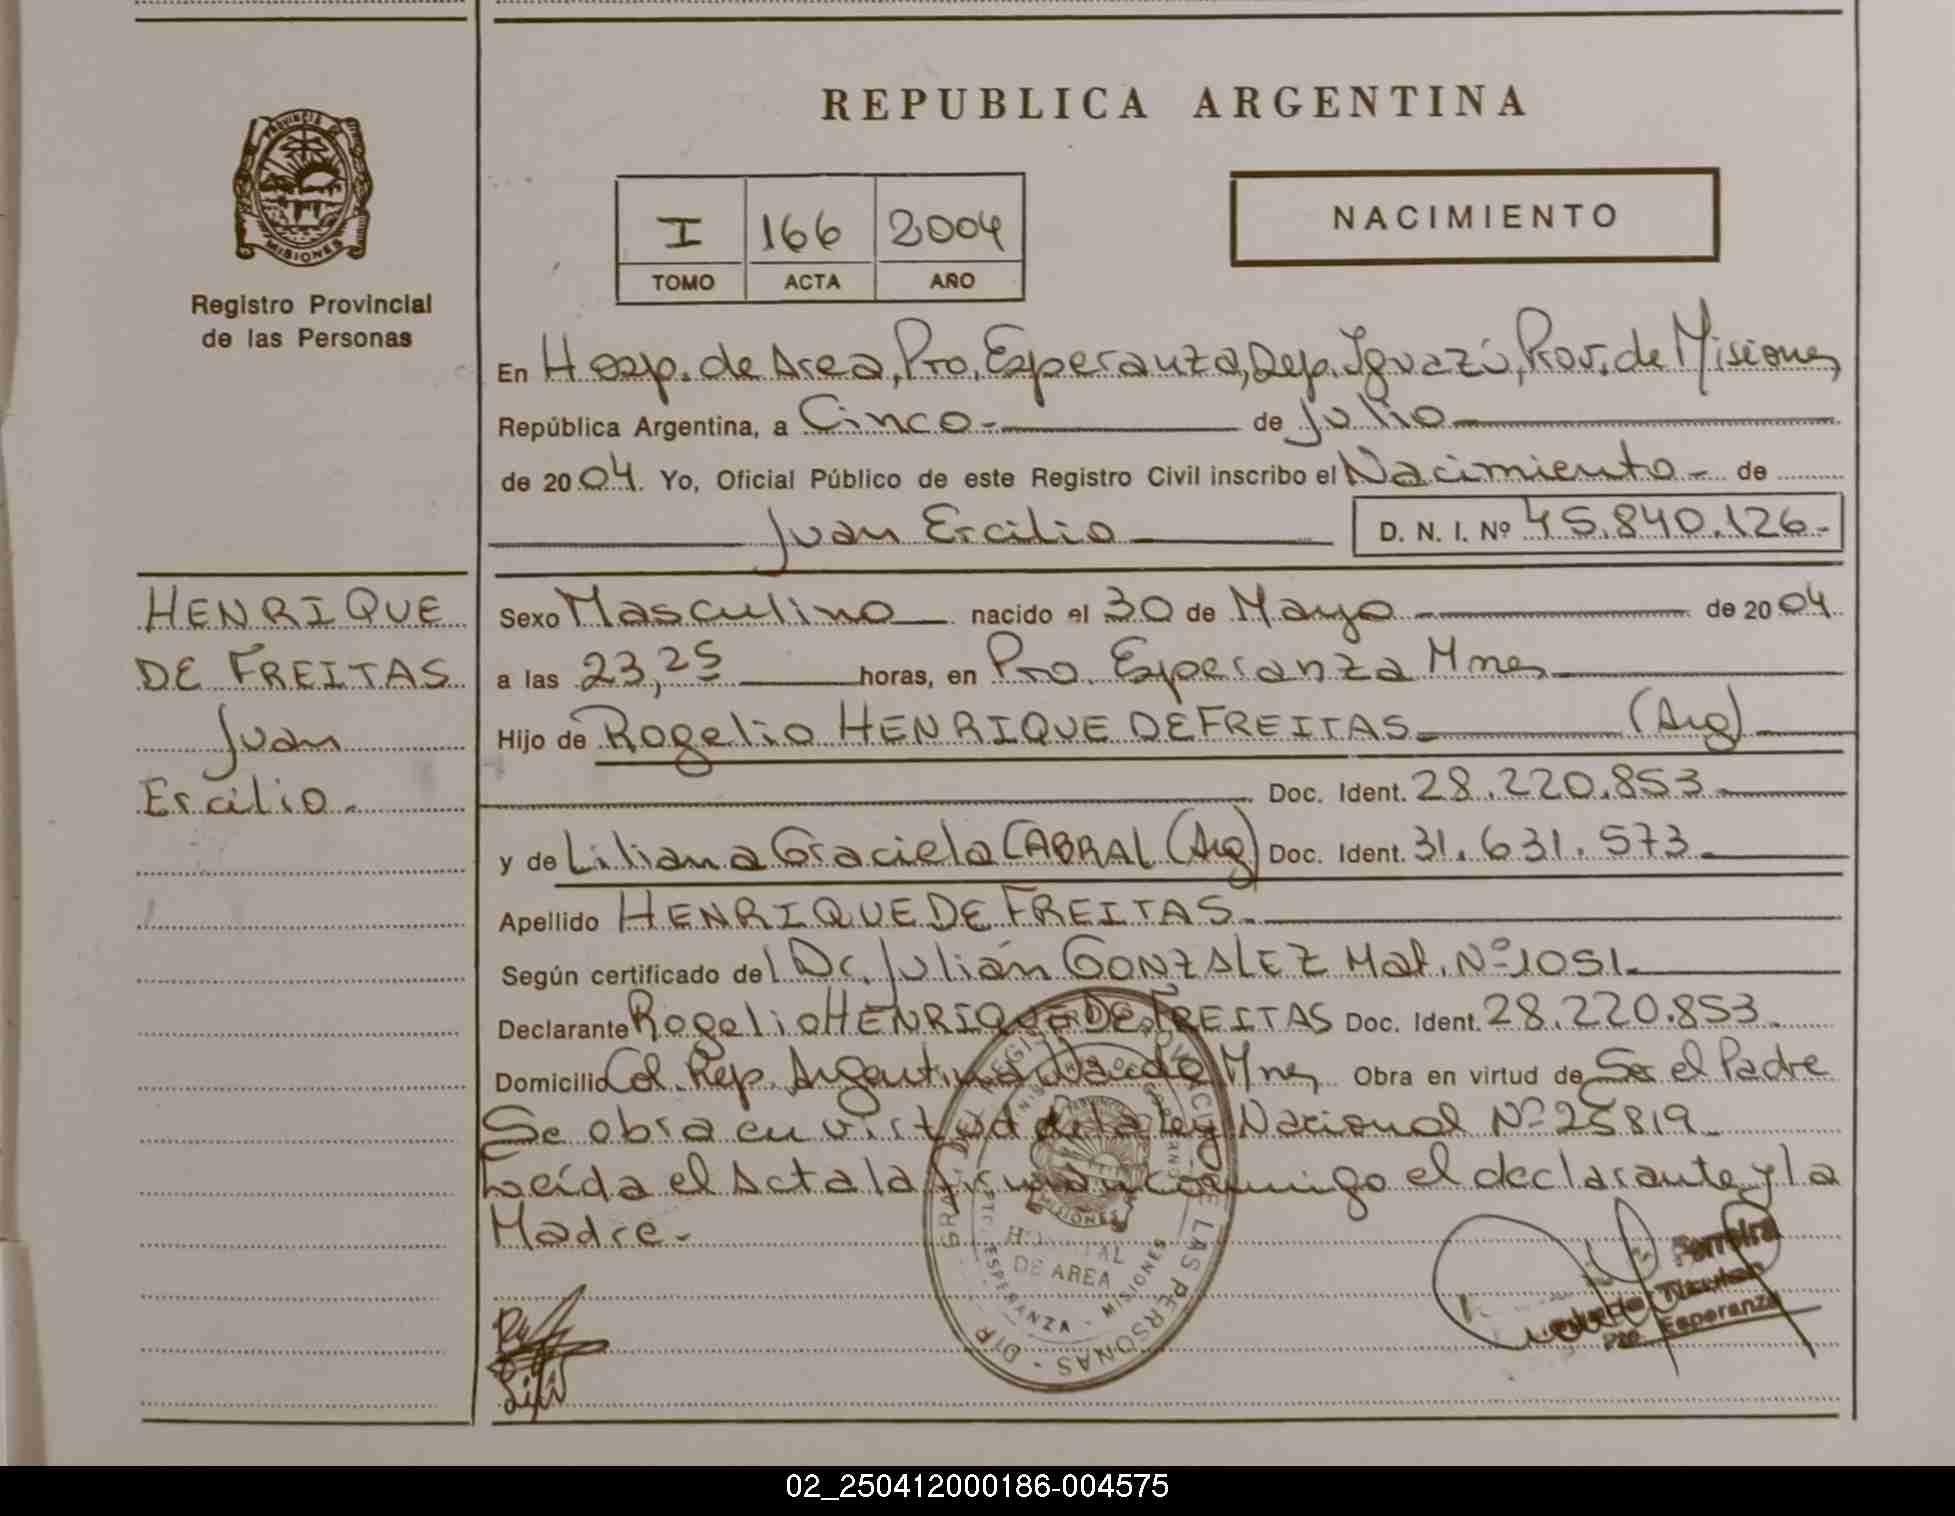 REPUBLICA ARGENTINA
PROVINCIA DE
MISIONES
Registro Provincial
de las Personas
I 166 2004
TOMO ACTA AÑO
NACIMIENTO
En Hosp. de Area, Pto. Esperanza, Dep. Iguazú, Prov. de Misiones
República Argentina, a Cinco.- de Julio
de 2004. Yo, Oficial Público de este Registro Civil inscribo el Nacimiento.- de
Juan Ercilio D. N. I. Nº 45.840.126.-
HENRIQUE
DE FREITAS
Juan
Ercilio.
Sexo Masculino nacido el 30 de Mayo de 2004.
a las 23,25 horas, en Pto. Esperanza Mnes
Hijo de Rogelio HENRIQUE DE FREITAS. (Arg)
Doc. Ident. 28.220.853.
y de Liliana Graciela CABRAL (Arg) Doc. Ident. 31.631.573.
Apellido HENRIQUE DE FREITAS.
Según certificado del Dr. Julián GONZALEZ Mat. Nº 1051.
Declarante Rogelio HENRIQUE DE FREITAS Doc. Ident. 28.220.853.
Domicilio Col. Rep. Argentina Wanda Mnes Obra en virtud de Ser el Padre
Se obra en virtud de la ley Nacional Nº 25819.
Leída el Acta la firman conmigo el declarante y la
Madre.-
REGISTRO PROVINCIAL DE LAS PERSONAS - DIR
MISIONES
HOSPITAL
DE AREA
PTO. ESPERANZA - MISIONES
Ferreira
Titular
Pto. Esperanza
02_250412000186-004575